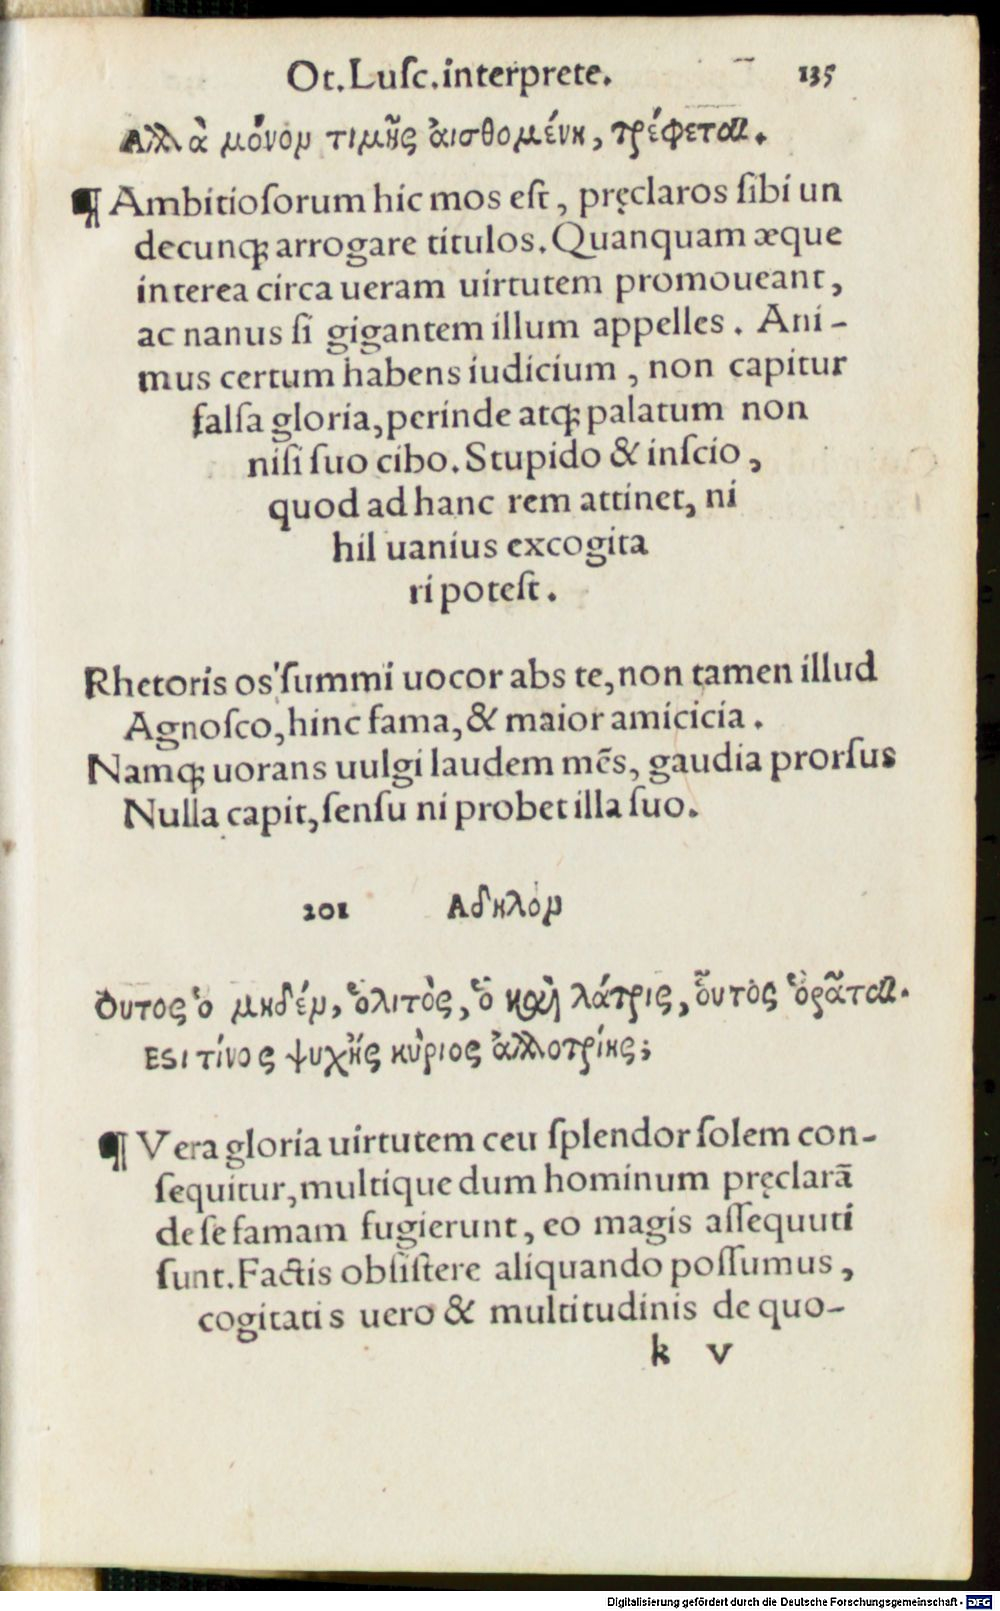 Ot. Lusc. interprete. 135
Αλλὰ μόνον τιμῆς ἀισθομένη, τρέφεται.
¶ Ambitiosorum hic mos est, pręclaros sibi un
decunq; arrogare titulos. Quanquam æque
interea circa ueram uirtutem promoueant,
ac nanus si gigantem illum appelles. Ani-
mus certum habens iudicium, non capitur
falsa gloria, perinde atq; palatum non
nisi suo cibo. Stupido & inscio,
quod ad hanc rem attinet, ni
hil uanius excogita
ri potest.
Rhetoris os summi uocor abs te, non tamen illud
Agnosco, hinc fama, & maior amicicia.
Namq; uorans uulgi laudem mẽs, gaudia prorsus
Nulla capit, sensu ni probet illa suo.
201 Αδηλὸν
Ὁυτος ὁ μηδέν, ὁλιτὸς, ὁ καὶ λάτρις, οὗτὸς ὁρᾶται.
Εϛι τίνος ψυχῆς κύριος ἀλλοτρίης;
¶ Vera gloria uirtutem ceu splendor solem con-
sequitur, multique dum hominum pręclarã
de se famam fugierunt, eo magis assequuti
sunt. Factis obsistere aliquando possumus,
cogitatis uero & multitudinis de quo-
k v
Digitalisierung gefördert durch die Deutsche Forschungsgemeinschaft - DFG